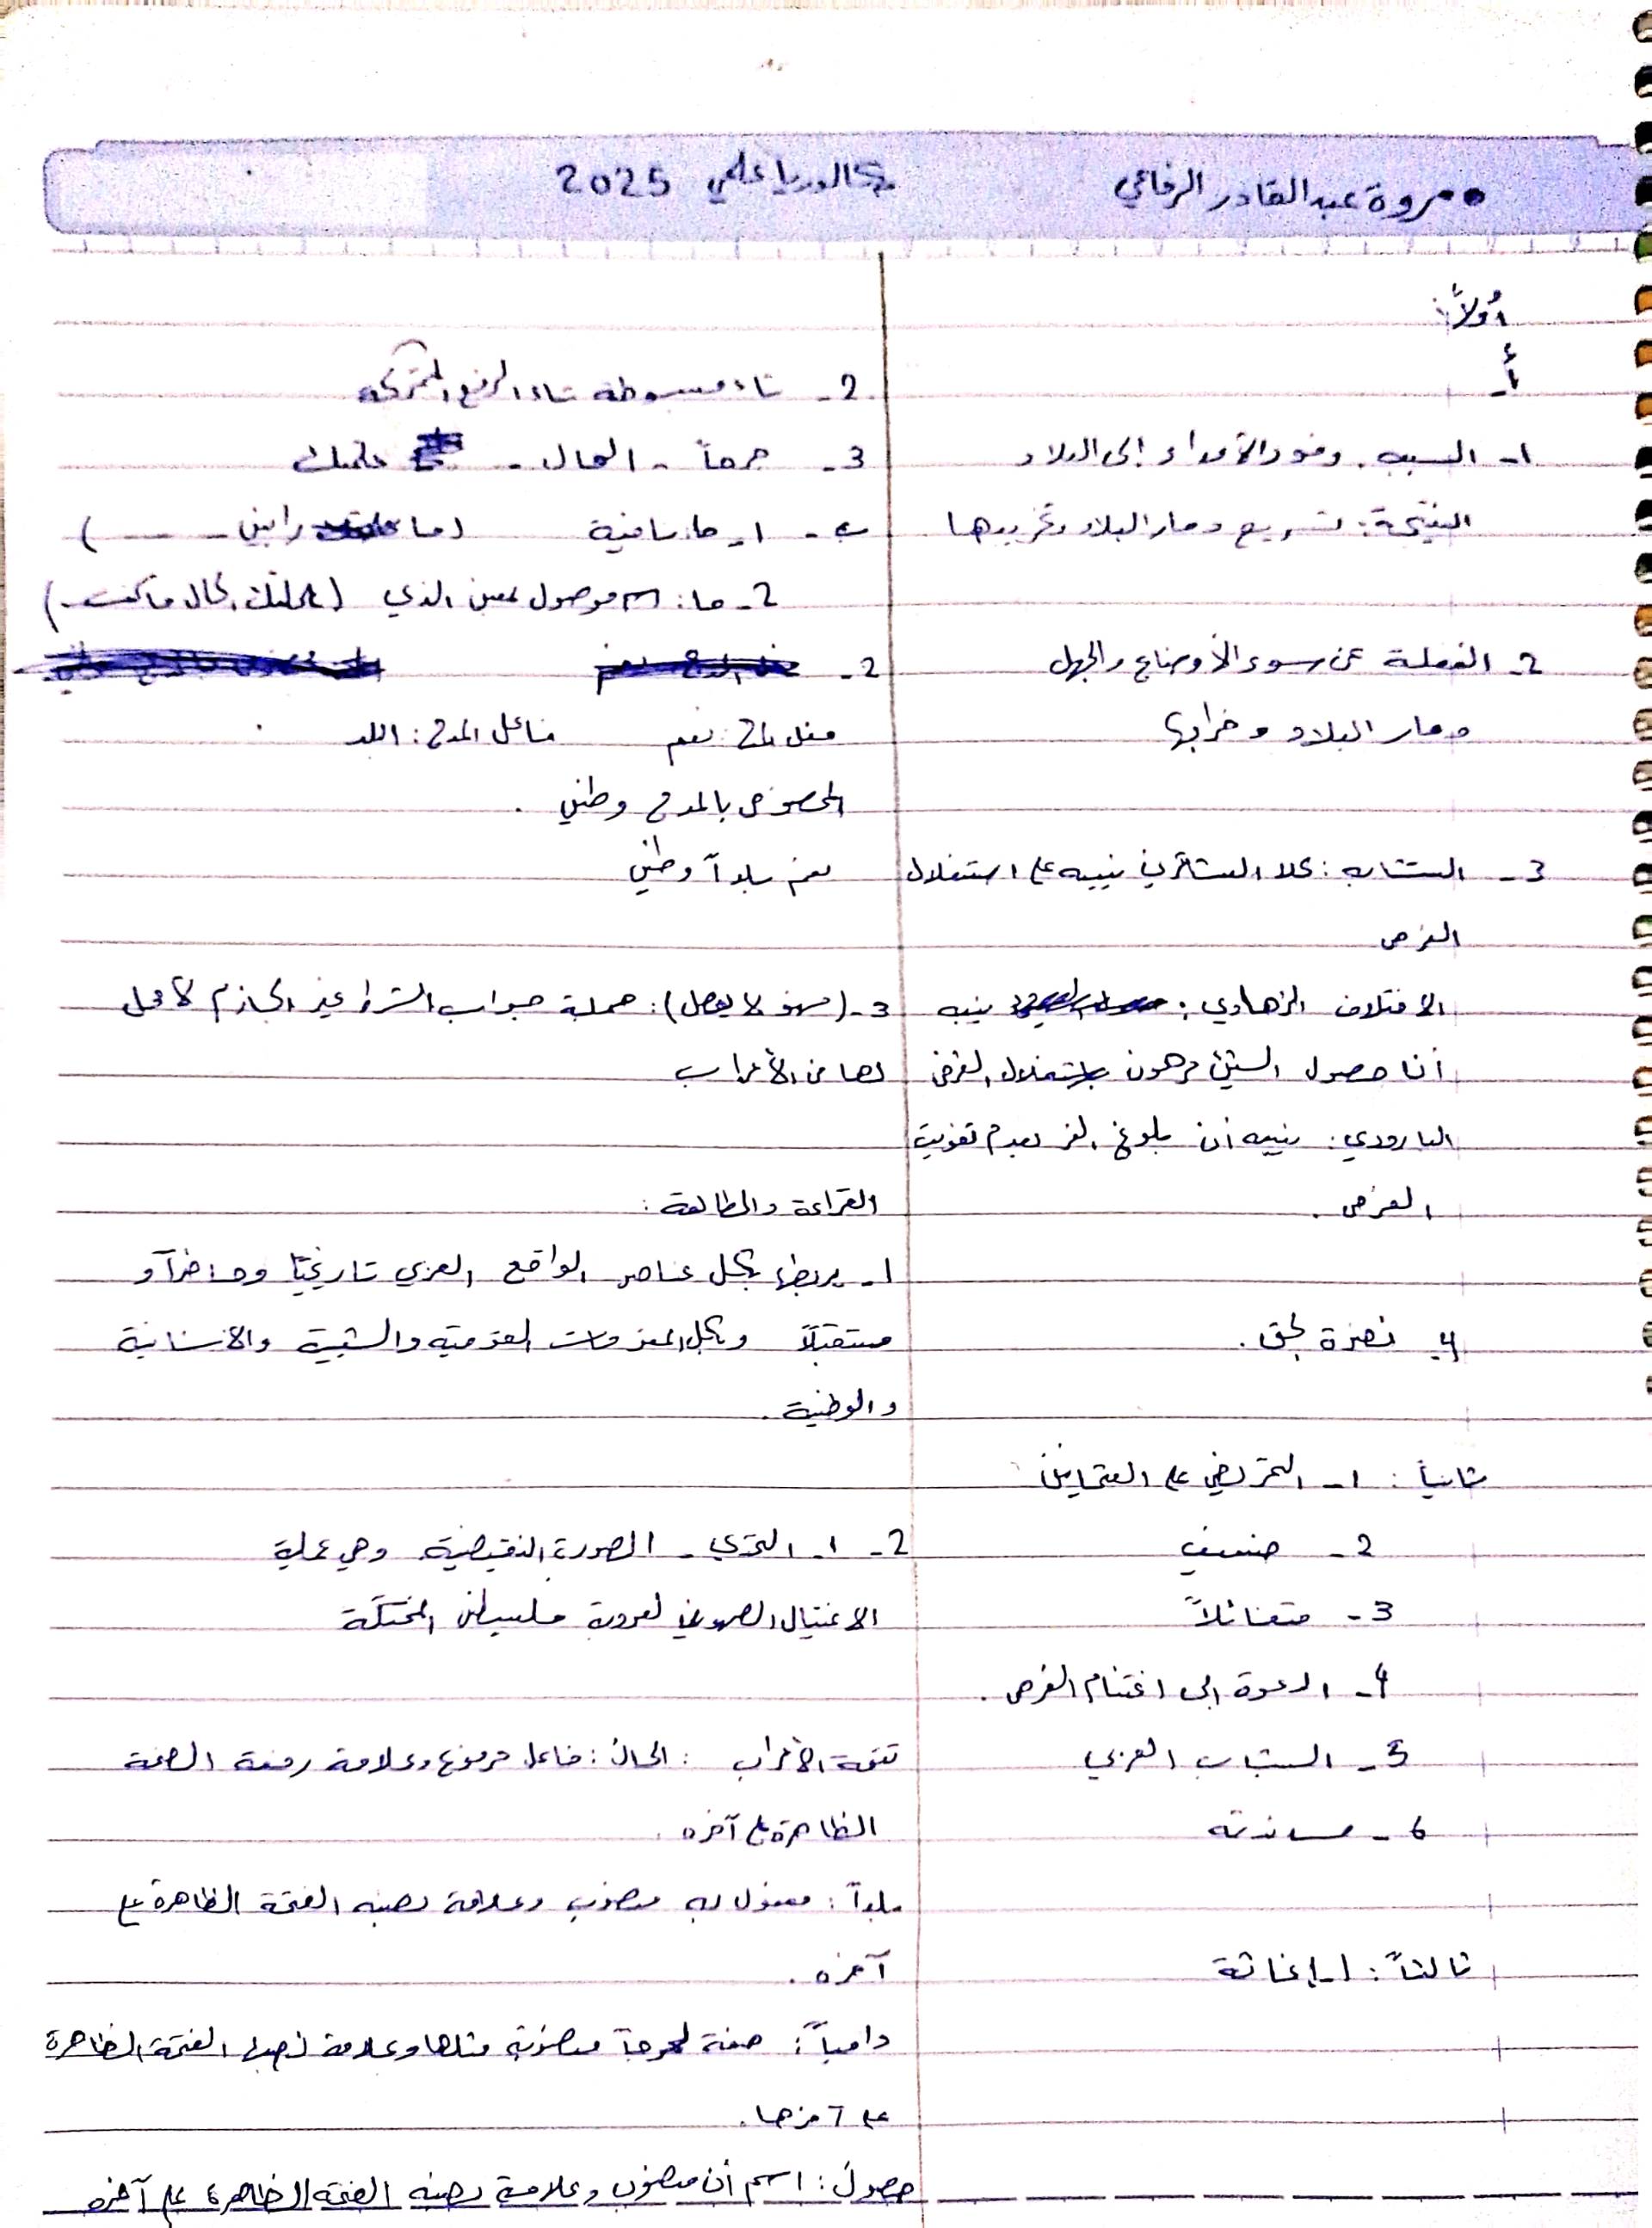 مروة عبد القادر الرفاعي
بكالوريا علمي 2025
أولاً:
أ-
1- السبب. وفود الأعداء إلى البلاد
النتيجة: تسريع دمار البلاد وتخريبها
2- الغفلة عن سوء الأوضاع والجهل
دمار البلاد وخرابها
3- التشابه: كلا الشاعرين ينبه على استغلال
الفرص
الاختلاف الزهاوي: ينبه
أنا حصول الشيئ مرهون باستغلال الفرص
البارودي: ينبه أن بلوغ العز بعدم تفويت
الفرص.
4- نصرة الحق.
ثانياً: 1- التحريض على العثمانيين
2- ضعيف
3- متفائلاً
4- الدعوة إلى اغتنام الفرص.
5- الشباب العربي
6- مساندته
ثالثاً: 1- إغاثة
2- تاء مبسوطة تاء الرفع المتحركة
3- جرحاً - الحال - علمتك
ب- 1- ما: نافية (ما رابني ---)
2- ما: اسم موصول بمعنى الذي (علمتك الحال ما كنت -)
2-
فعل المدح: نعم فاعل المدح: البلد
المخصوص بالمدح وطني.
نعم بلداً وطني
3- (فهو لا يحصل): جملة جواب الشرط غير الجازم لا محل
لها من الأعراب
القراءة والمطالعة:
1- يربطها بكل عناصر الواقع العربي تاريخيًا وحاضراً و
مستقبلاً وبكل المقومات القومية والشعبية والانسانية
والوطنية.
2- 1- التحدي - الصورة النقيضية. وهي عملية
الاغتيال الصهيوني لعروبة فلسطين المحتلة
تتمة الأعراب: الحالُ: فاعل مرفوع وعلامة رفعه الضمة
الظاهرة على آخره.
بلداً: مفعول به منصوب وعلامة نصبه الفتحة الظاهرة على
آخره.
دامياً: صفة لجرحاً منصوبة مثلها وعلامة نصبها الفتحة الظاهرة
على آخرها.
حصولَ: اسم أن منصوب وعلامة نصبه الفتحة الظاهرة على آخره